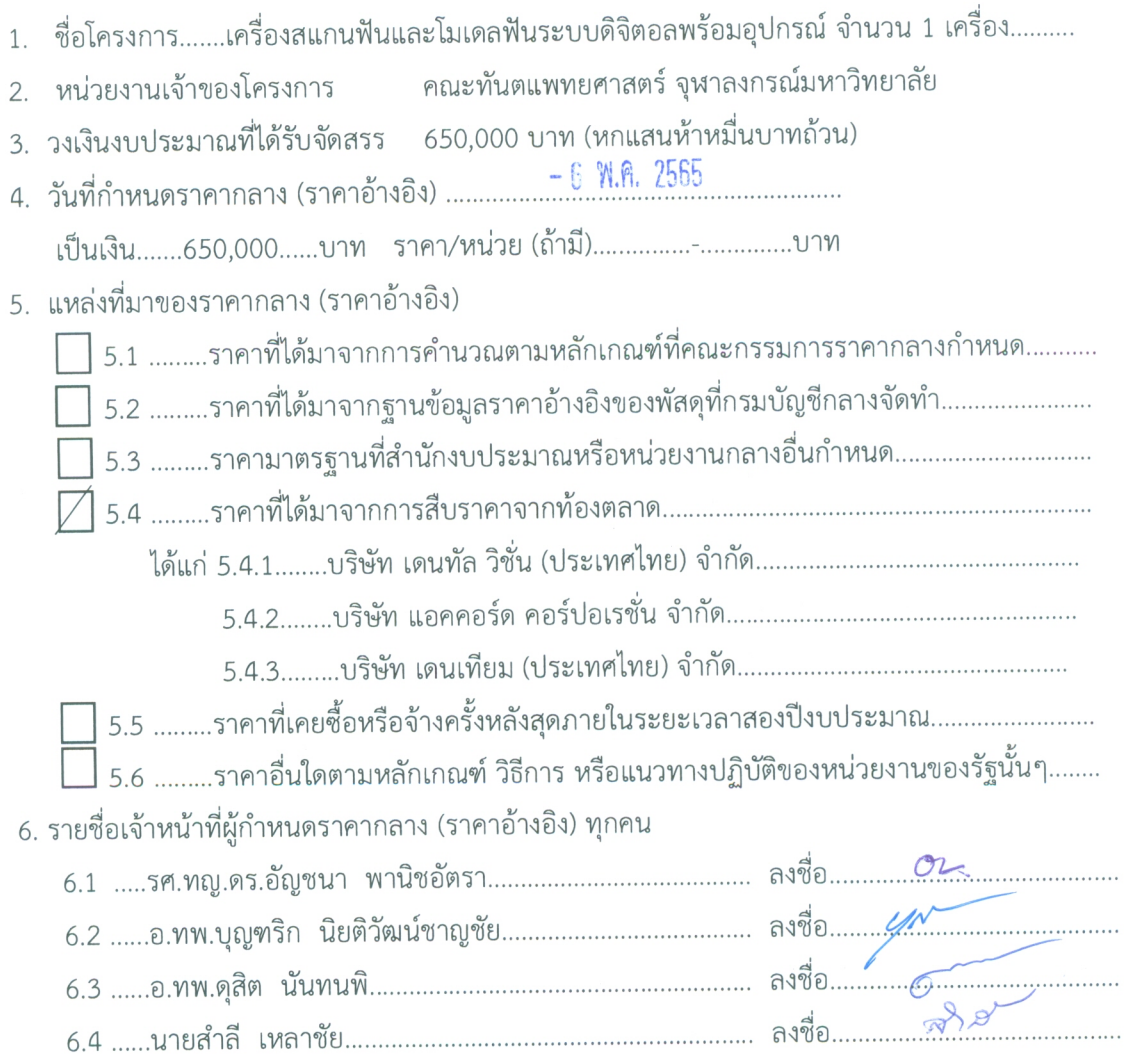 1. ชื่อโครงการ.......เครื่องสแกนฟันและโมเดลฟันระบบดิจิตอลพร้อมอุปกรณ์ จำนวน 1 เครื่อง..........
2. หน่วยงานเจ้าของโครงการ คณะทันตแพทยศาสตร์ จุฬาลงกรณ์มหาวิทยาลัย
3. วงเงินงบประมาณที่ได้รับจัดสรร 650,000 บาท (หกแสนห้าหมื่นบาทถ้วน)
- 6 พ.ค. 2565
4. วันที่กำหนดราคากลาง (ราคาอ้างอิง) ..........................................................
เป็นเงิน.......650,000......บาท ราคา/หน่วย (ถ้ามี)...............-..............บาท
5. แหล่งที่มาของราคากลาง (ราคาอ้างอิง)
5.1 .........ราคาที่ได้มาจากการคำนวณตามหลักเกณฑ์ที่คณะกรรมการราคากลางกำหนด...........
5.2 .........ราคาที่ได้มาจากฐานข้อมูลราคาอ้างอิงของพัสดุที่กรมบัญชีกลางจัดทำ.......................
5.3 .........ราคามาตรฐานที่สำนักงบประมาณหรือหน่วยงานกลางอื่นกำหนด..............................
5.4 .........ราคาที่ได้มาจากการสืบราคาจากท้องตลาด.................................................................
ได้แก่ 5.4.1........บริษัท เดนทัล วิชั่น (ประเทศไทย) จำกัด.................................................
5.4.2........บริษัท แอคคอร์ด คอร์ปอเรชั่น จำกัด.....................................................
5.4.3.........บริษัท เดนเทียม (ประเทศไทย) จำกัด..................................................
5.5 .........ราคาที่เคยซื้อหรือจ้างครั้งหลังสุดภายในระยะเวลาสองปีงบประมาณ.........................
5.6 .........ราคาอื่นใดตามหลักเกณฑ์ วิธีการ หรือแนวทางปฏิบัติของหน่วยงานของรัฐนั้นๆ........
6. รายชื่อเจ้าหน้าที่ผู้กำหนดราคากลาง (ราคาอ้างอิง) ทุกคน
6.1 .....รศ.ทญ.ดร.อัญชนา พานิชอัตรา........................................ ลงชื่อ............................................
6.2 ......อ.ทพ.บุญฑริก นิยติวัฒน์ชาญชัย...................................... ลงชื่อ............................................
6.3 ......อ.ทพ.ดุสิต นันทนพิ.......................................................... ลงชื่อ............................................
6.4 ......นายสำลี เหลาชัย.............................................................. ลงชื่อ............................................